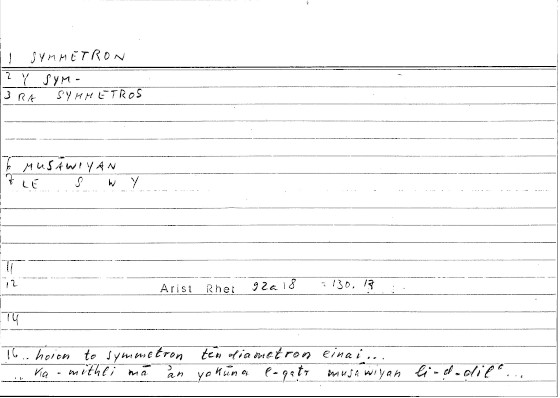 1 SYMMETRON
2 Y SYM-
3 RA SYMMETROS
6 MUSĀWIYAN
7 LE S W Y
11
12 Arist Rhet 92a18 =130.17
14
16 .. hoion to symmetron tēn diametron einai...
.. ka-mithli mā an yakūna l-qaṭr musāwiyan li-ḍ-ḍilʿ...